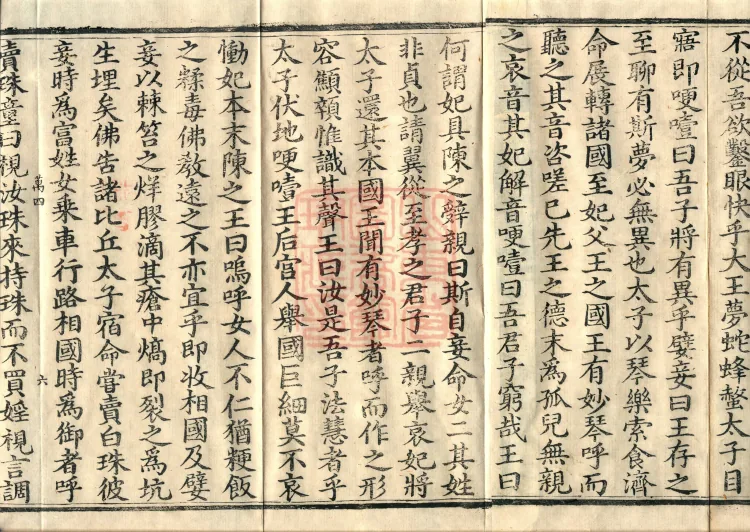 不從吾欲鑿眼快乎大王夢蛇蜂螫太子目
寤即哽噎曰吾子將有異乎嬖妾曰王存之
至聊有斯夢必無異也太子以琴樂索食濟
命展轉諸國至妃父王之國王有妙琴呼而
聽之其音咨嗟已先王之德末為孤兒無親
之哀音其妃解音哽噎曰吾君子窮哉王曰
何謂妃具陳之辭親曰斯自妾命女二其姓
非貞也請翼從至孝之君子二親舉哀妃將
太子還其本國王聞有妙琴者呼而作之形
容顯領惟識其聲王曰汝是吾子法慧者乎
太子伏地哽噎王后宮人舉國巨細莫不哀
慟妃本末陳之王曰嗚呼女人不仁猶粳飯
之糅毒佛教遠之不亦宜乎即收相國及嬖
妾以棘笞之烊膠滴其瘡中熇即裂之為坑
生埋矣佛告諸比丘太子宿命嘗賣白珠彼
妾時為富姓女乘車行路相國時為御者呼
萬四 六
賣珠童曰視汝珠來持珠而不買婬視言調